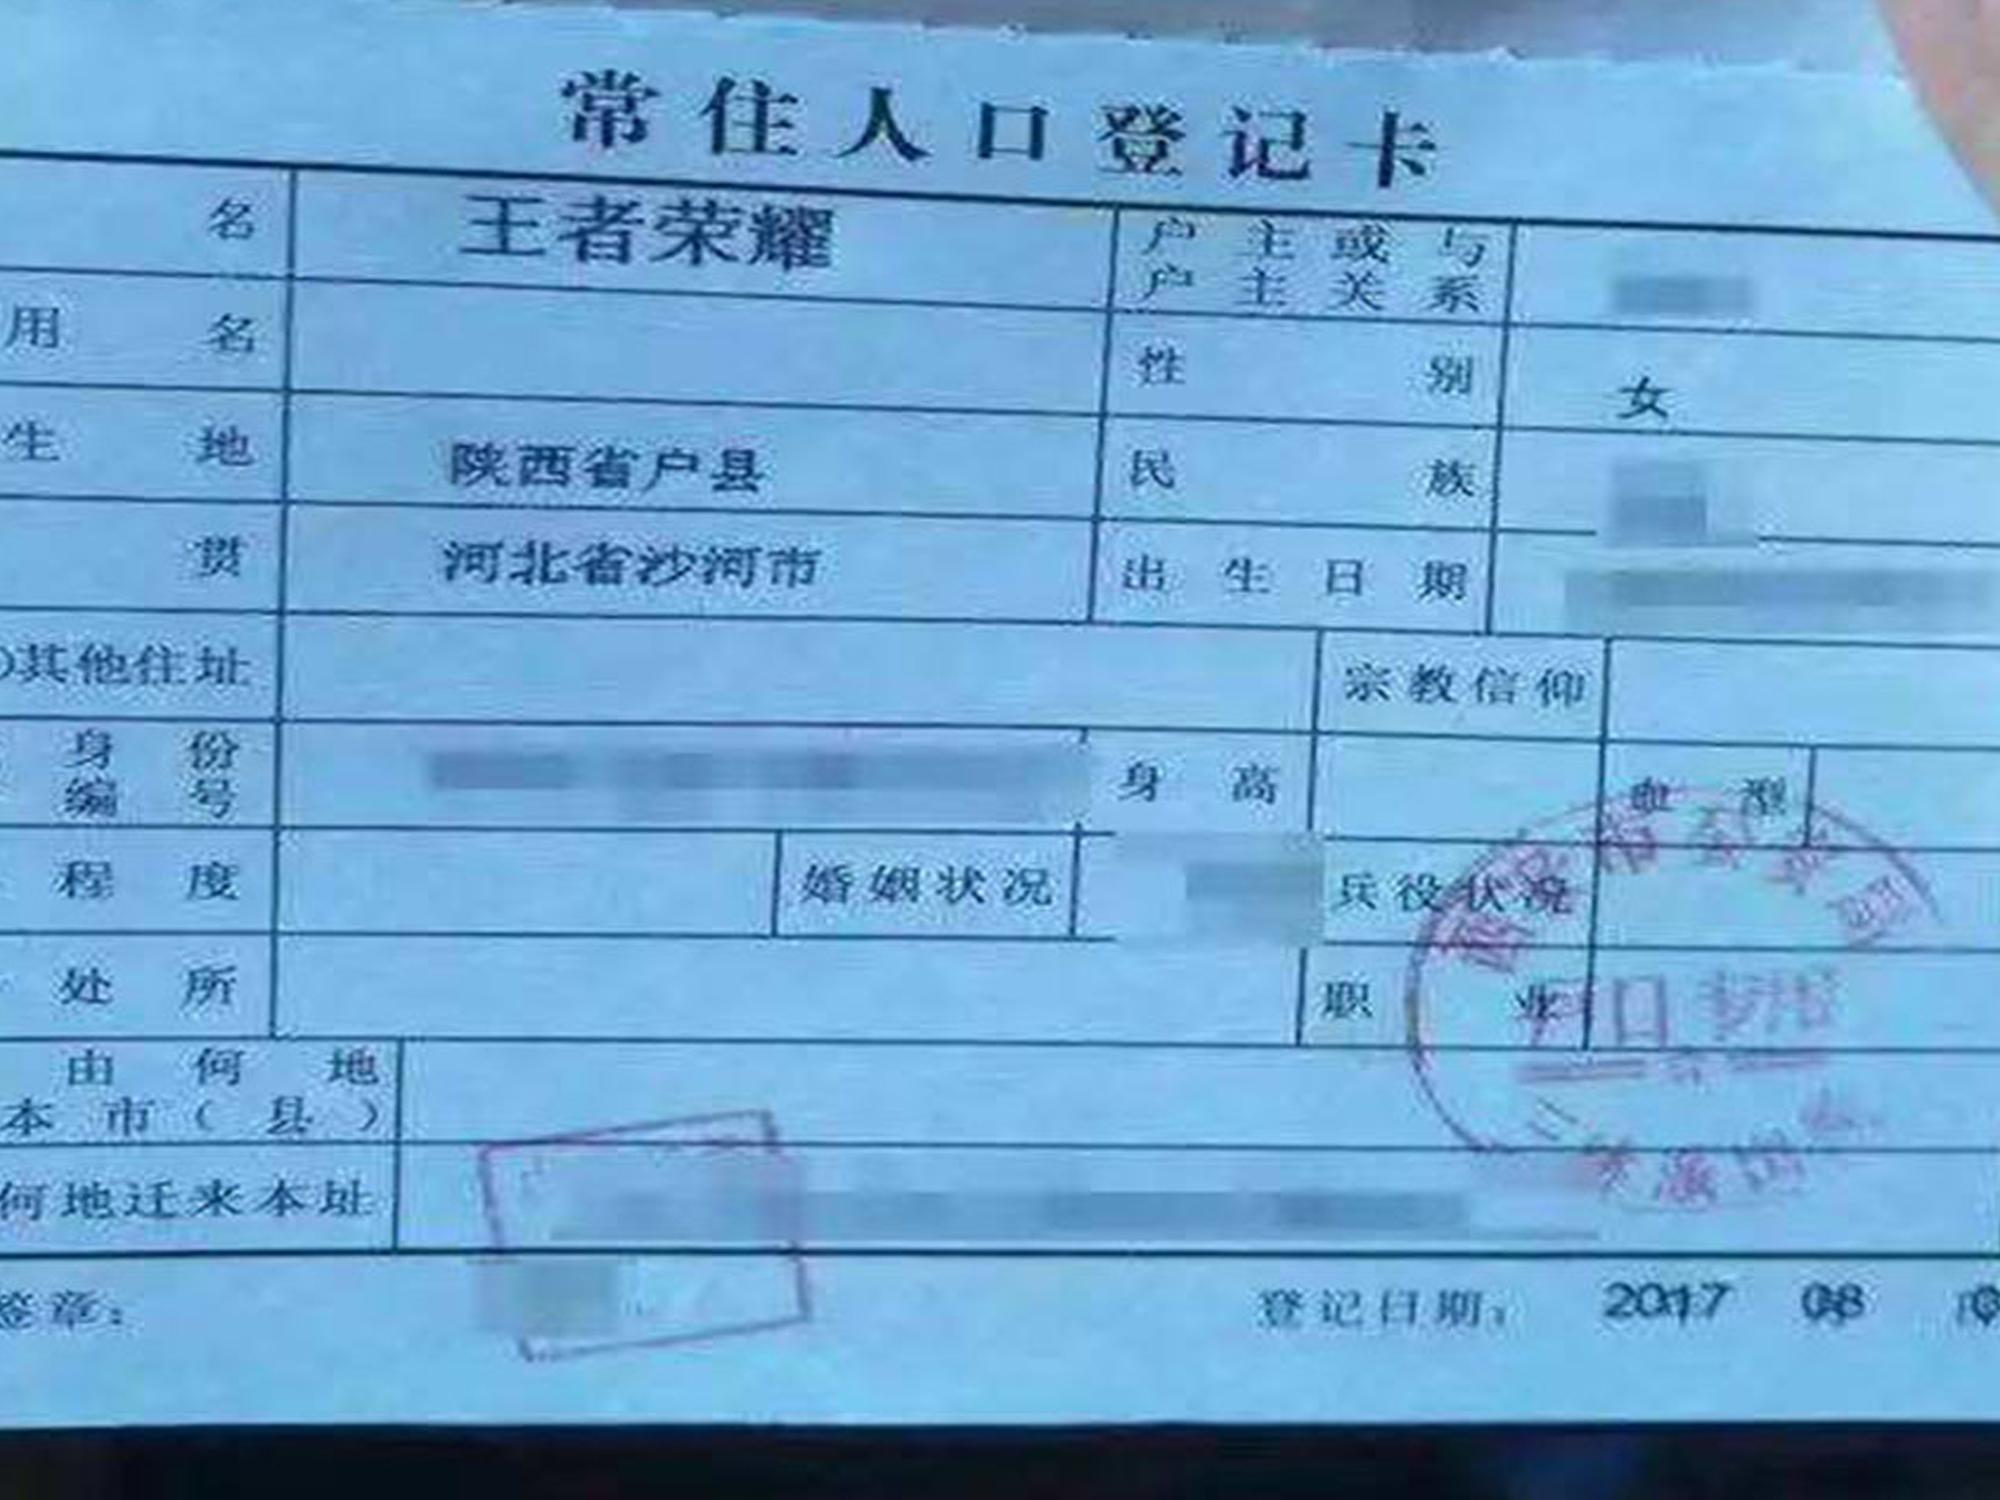 常住人口登记卡
名 王者荣耀 户主或与
户主关系
用名 性别 女
生地 陕西省户县 民族
贯 河北省沙河市 出生日期
)其他住址 宗教信仰
身份
编号 身高 血型
程度 婚姻状况 兵役状况
处所 职业
由何地
本市(县)
何地迁来本址
签章: 登记日期: 2017 08
户口专用